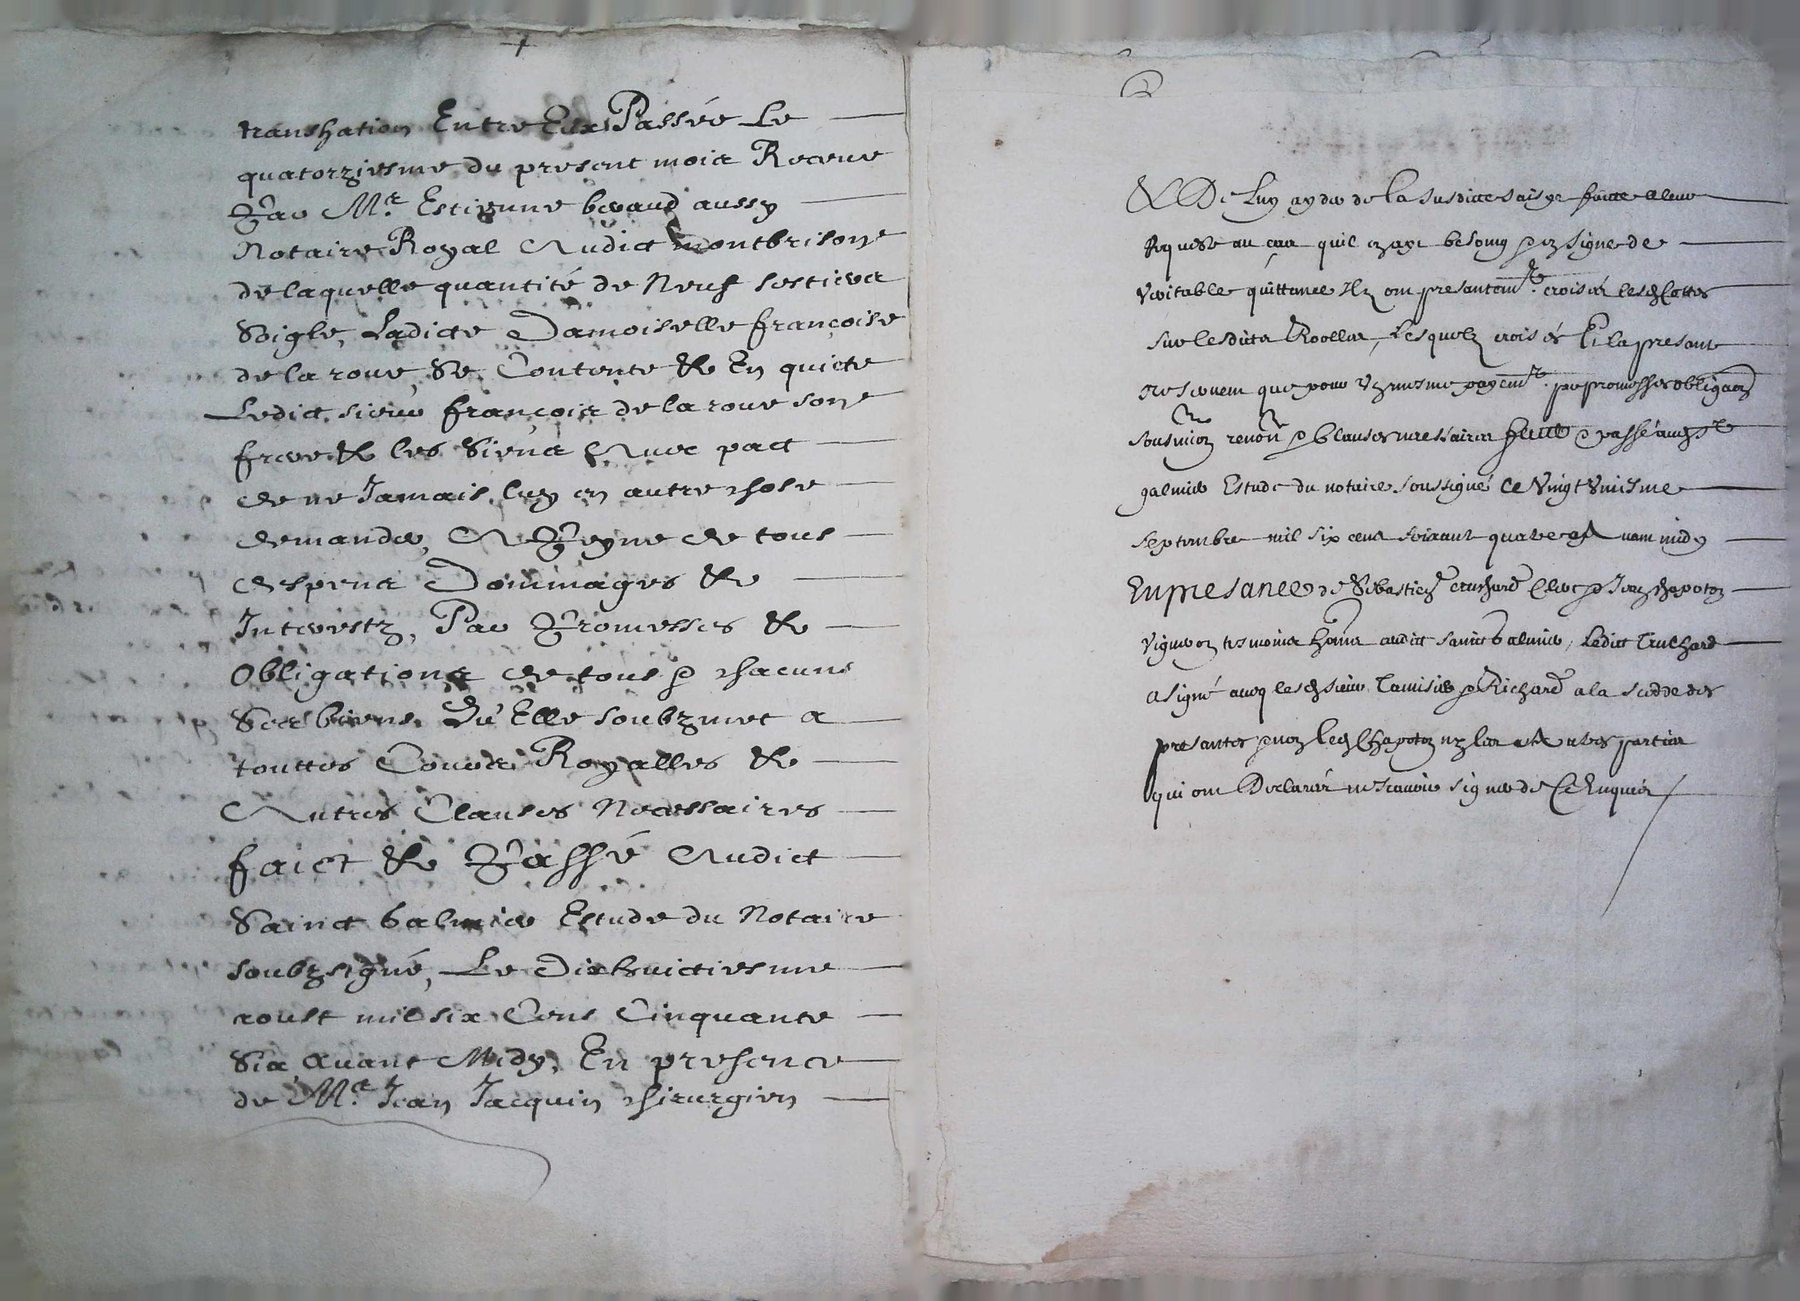 transhation Entre Eux Passée Le
quatorziesme du present mois Receue
Par Me. Estienne beraud aussy
Notaire Royal Audict montbrison
de laquelle quantité de Neuf sestiers
Seigle, Ladicte Damoiselle françoise
de la roue, Se Contente & En quicte
Ledict sieur françois de la roue son
frere & les Siens Avec pact
de ne Jamais luy en autre chose
demander, A Peyne de tous
despens Dommages &
Interestz, Par Promesses &
Obligations de tous & chacuns
Ses biens, Qu'Elle soubzmet a
touttes Cours Royalles &
Autres Clauses Necessaires
faict & Passé Audict
Sainct Galmier Estude du Notaire
soubzsigné, Le Dixhuictiesme
aoust mil six Cens Cinquante
Six Avant Midy, En presence
de Me. Jean Jacquin chirurgien
& De Luy ayder de la susdicte saisye faicte a leur
Requeste au cas quil en aye besoing & en signe de
veritable quittance Ilz ont presantemt. croisés lesd Cottes
sur lesdits Roolles, Lesquelz croisés Et la presante
ne servent que pour Un mesme payemt. par promesses obligaon
sousmion renon & Clauses necessaires faict & passé aud St
galmier Estude du notaire soussigné Ce Vingt Uniesme
septembre mil six cens soixante quatre avant midy
En presance de Sebastien Truchard Clerc & Jean Chapoton
vigneron tesmoins audict sainct Galmier, Ledict Truchard
a signé avec lesd sieurs & Richard a la cedde des
presantes & non led Chapoton ny les autres parties
qui ont Declarés ne scavoir signer de Ce Enquis